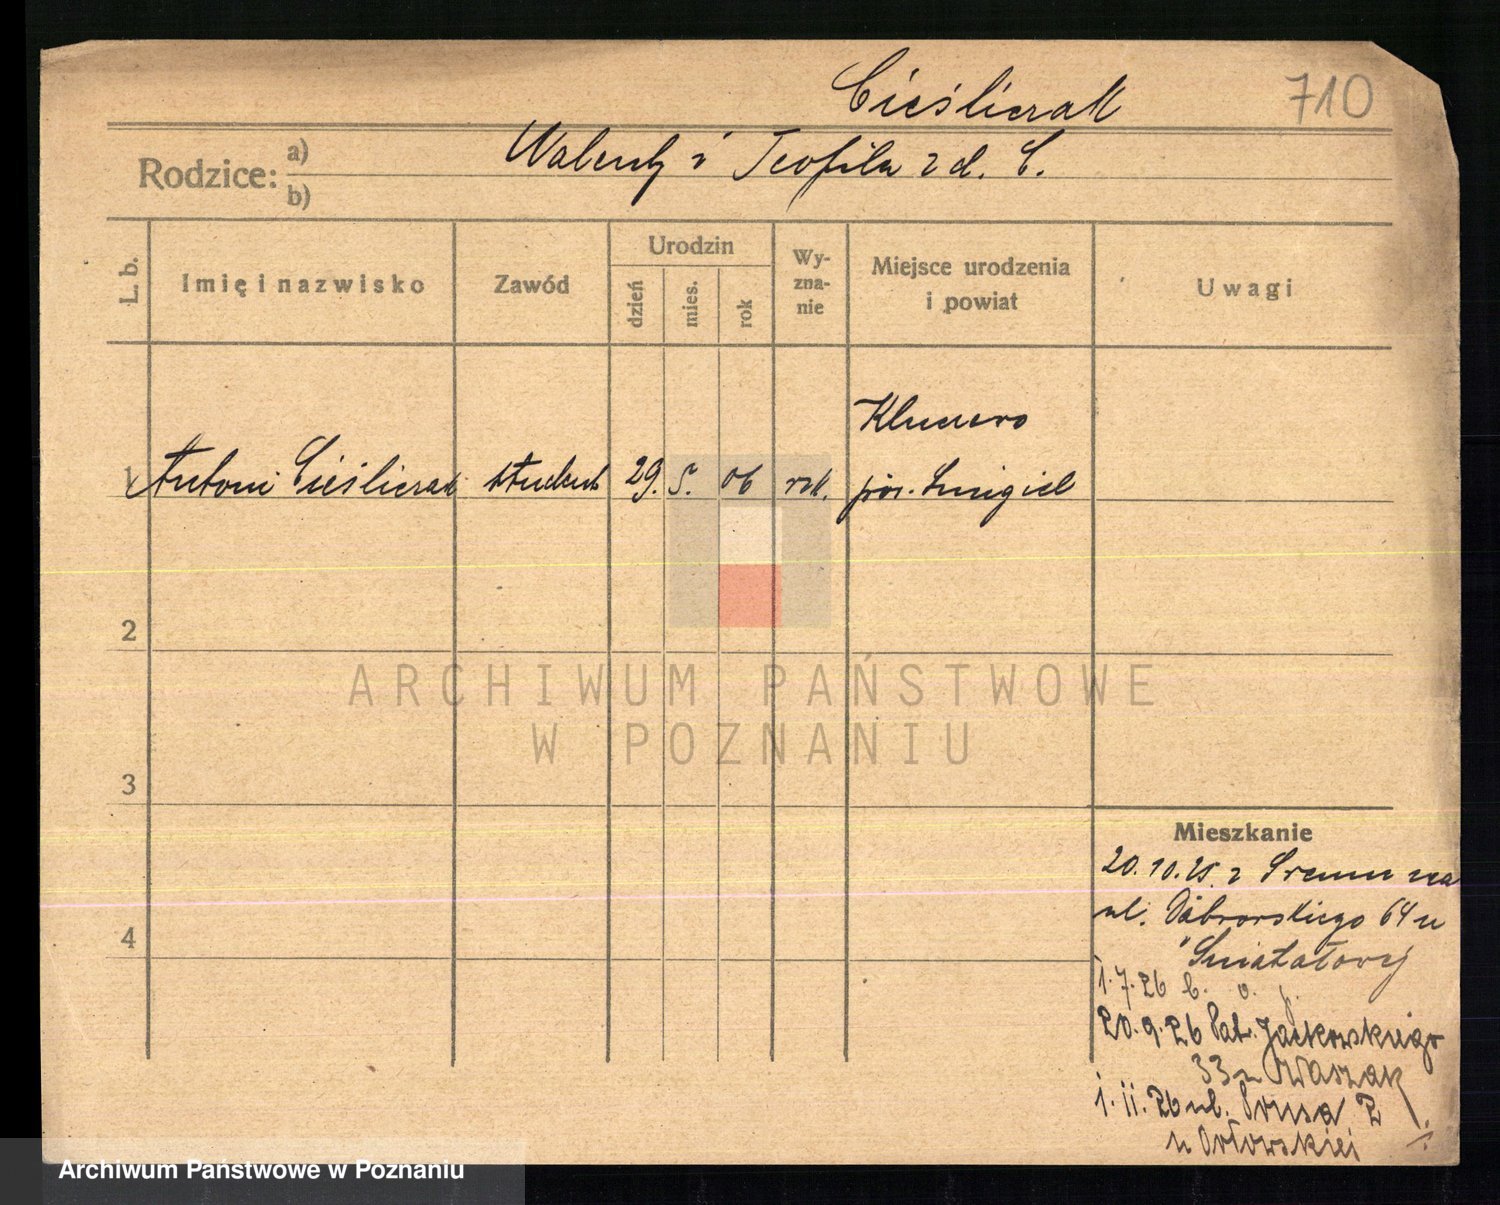 710
Cieśliczak
Rodzice: a) b)
Walenty i Teofila z d. C.
L. b.
Imię i nazwisko
Zawód
Urodzin
dzień
mies.
rok
Wy-
zna-
nie
Miejsce urodzenia
i powiat
Uwagi
1 Antoni Cieśliczak student 29. 5. 06 rzk. Kluczewo
pow. Śmigiel
2
3
4
Mieszkanie
20.10.25. z Śremu na
ul. Dąbrowskiego 64 u
1.7.26
20.9.26 Jackowskiego
33 u Owaszak
1.11.26 ul. Prusa 2
u Orłowskiej
ARCHIWUM PAŃSTWOWE
W POZNANIU
Archiwum Państwowe w Poznaniu